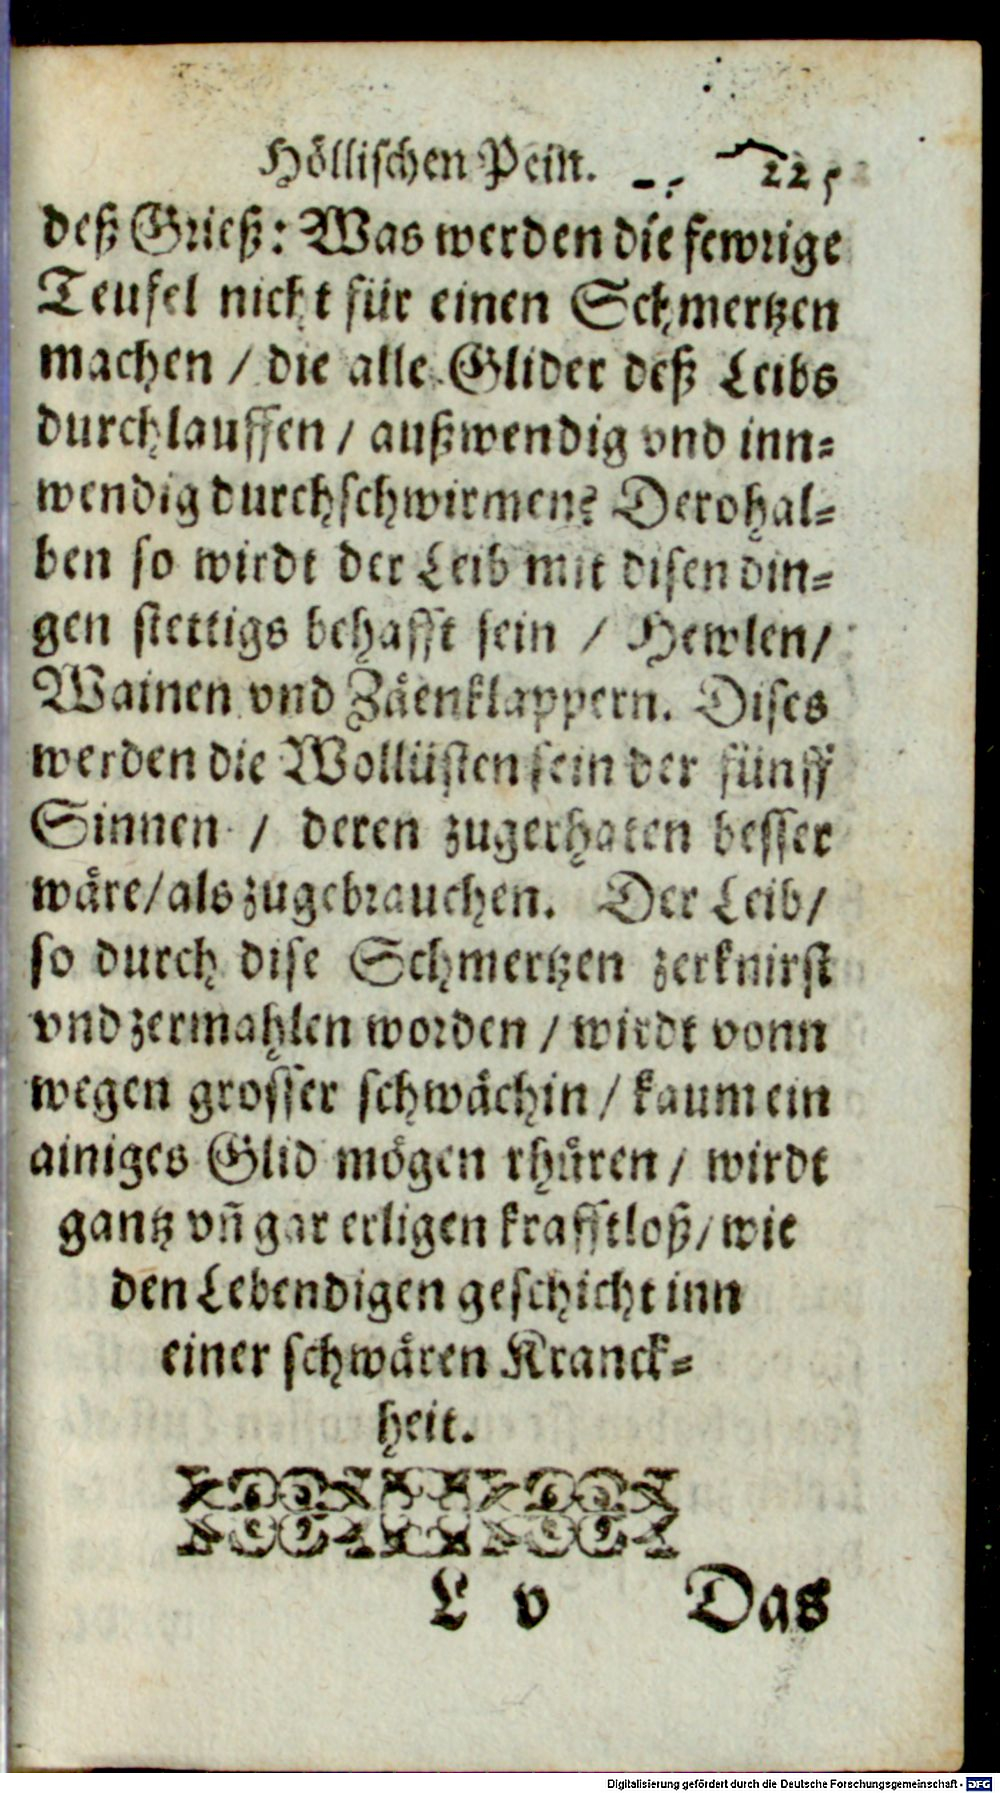 Höllischen Pein. 225
deß Grieß: Was werden die fewrige
Teufel nicht für einen Schmertzen
machen / die alle Glider deß Leibs
durchlauffen / außwendig vnd inn⸗
wendig durchschwirmen? Derohal⸗
ben so wirdt der Leib mit disen din⸗
gen stettigs behafft sein / Hewlen /
Wainen vnd Zäenklappern. Dises
werden die Wollüsten sein der fünff
Sinnen / deren zugerhaten besser
wäre / als zugebrauchen. Der Leib /
so durch dise Schmertzen zerknirst
vnd zermahlen worden / wirdt vonn
wegen grosser schwächin / kaum ein
ainiges Glid mögen rhüren / wirdt
gantz vñ gar erligen krafftloß / wie
den Lebendigen geschicht inn
einer schwären Kranck⸗
heit.
L v Das
Digitalisierung gefördert durch die Deutsche Forschungsgemeinschaft - DFG